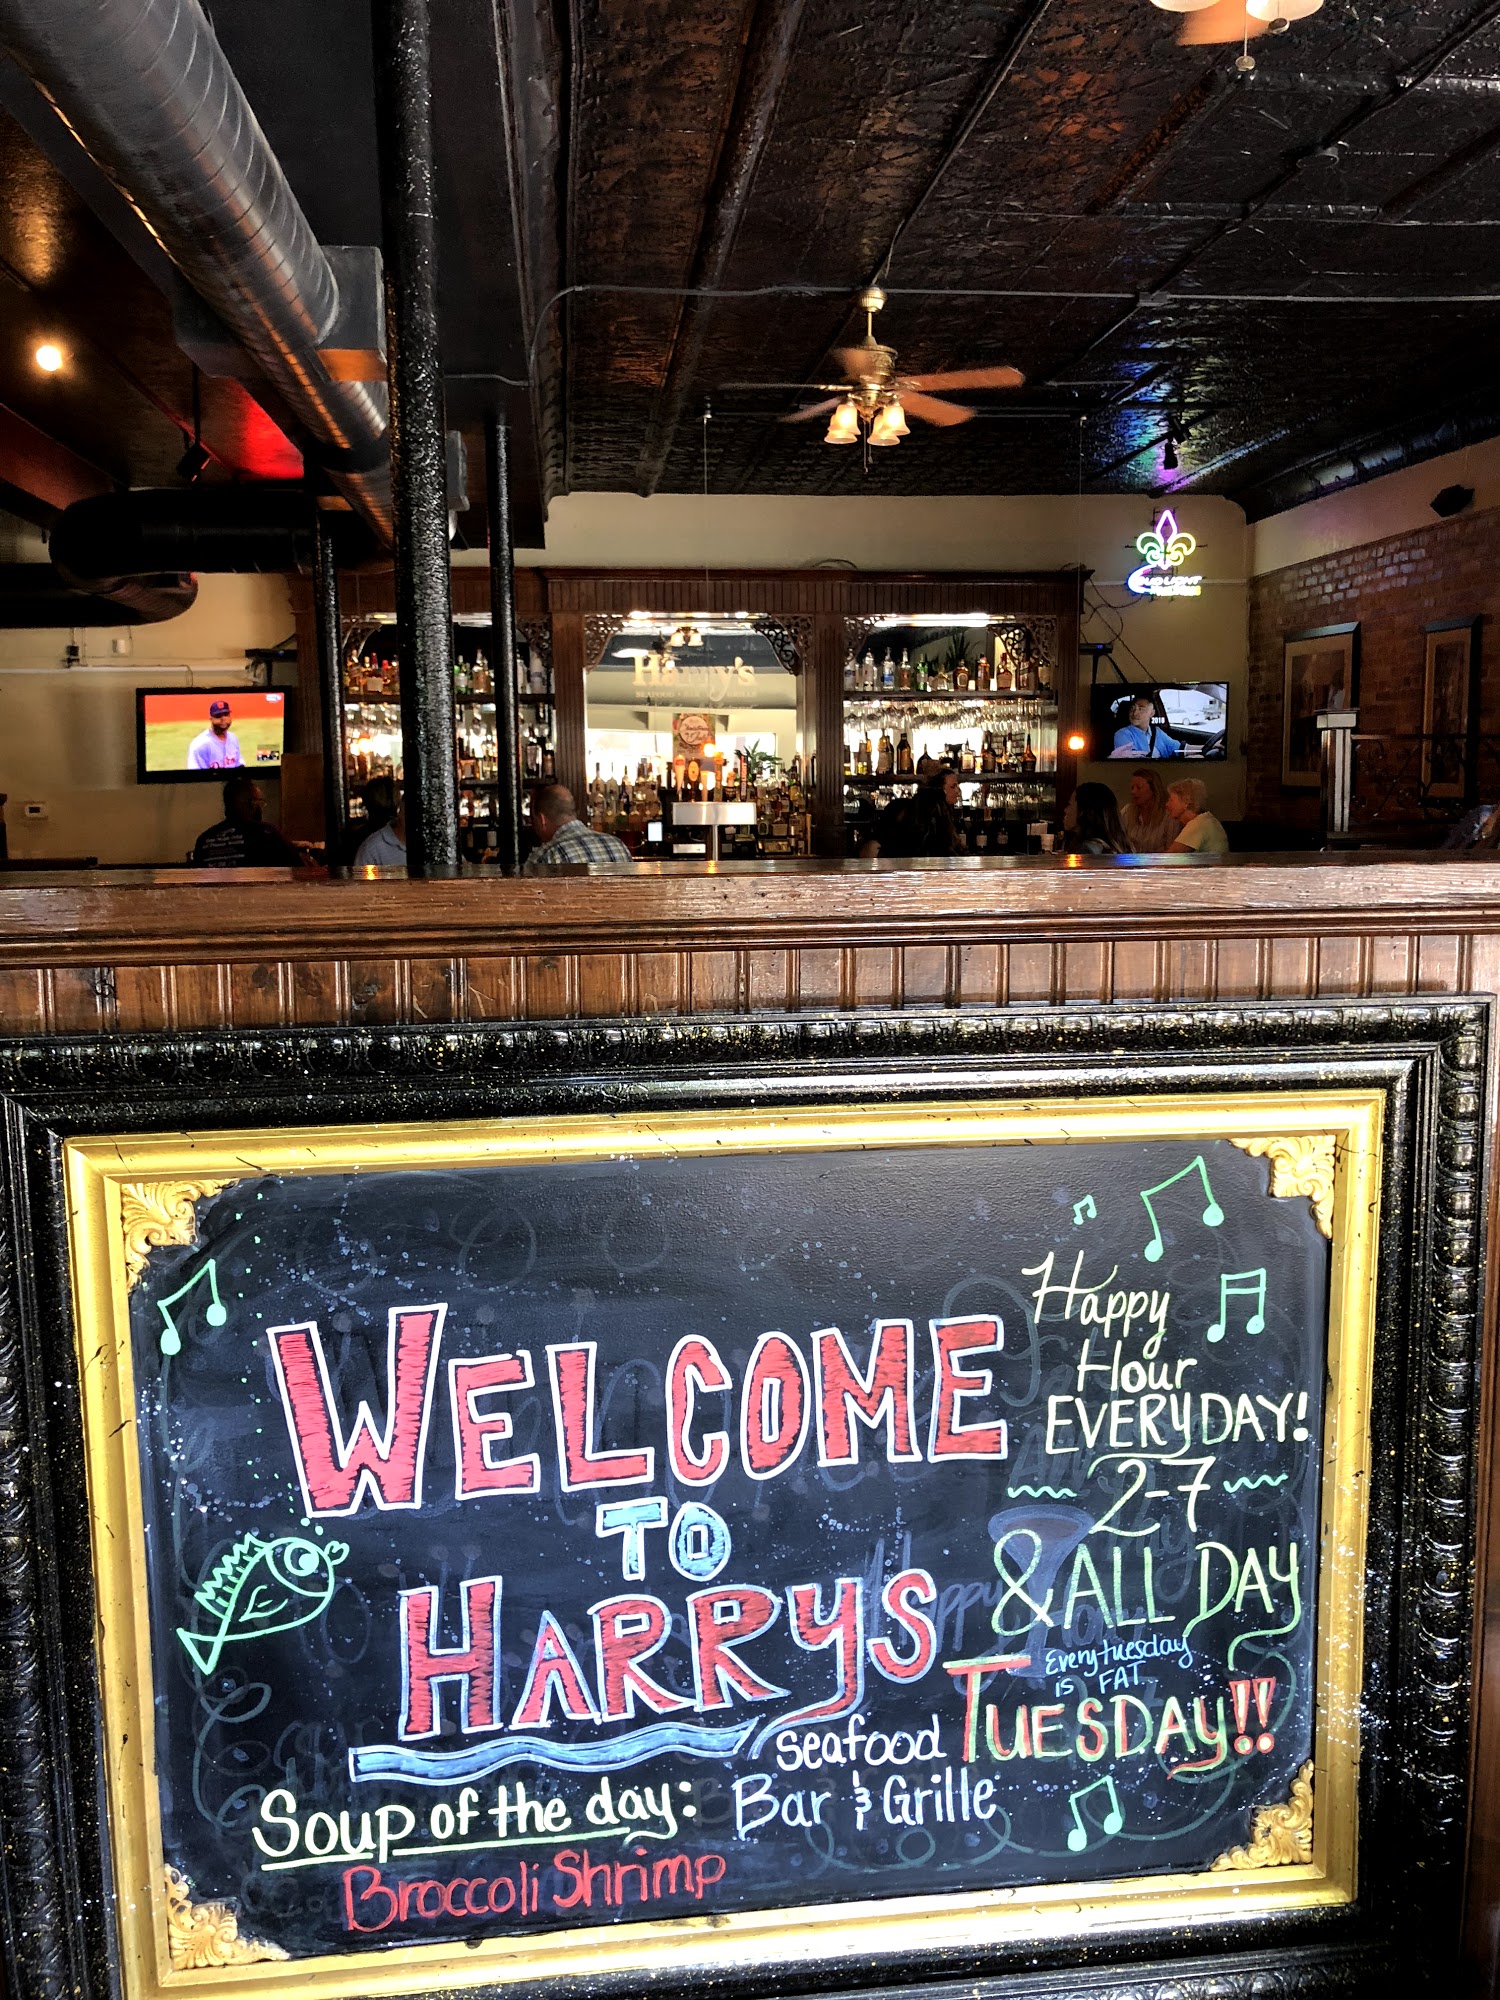 Harry's
SEAFOOD • BAR & GRILLE
BUD LIGHT
2018
WELCOME
TO
HARRYS
seafood
Bar & Grille
Soup of the day:
Broccoli Shrimp
Happy
Hour
EVERYDAY!
2-7
& ALL DAY
Every tuesday
is FAT
TUESDAY!!